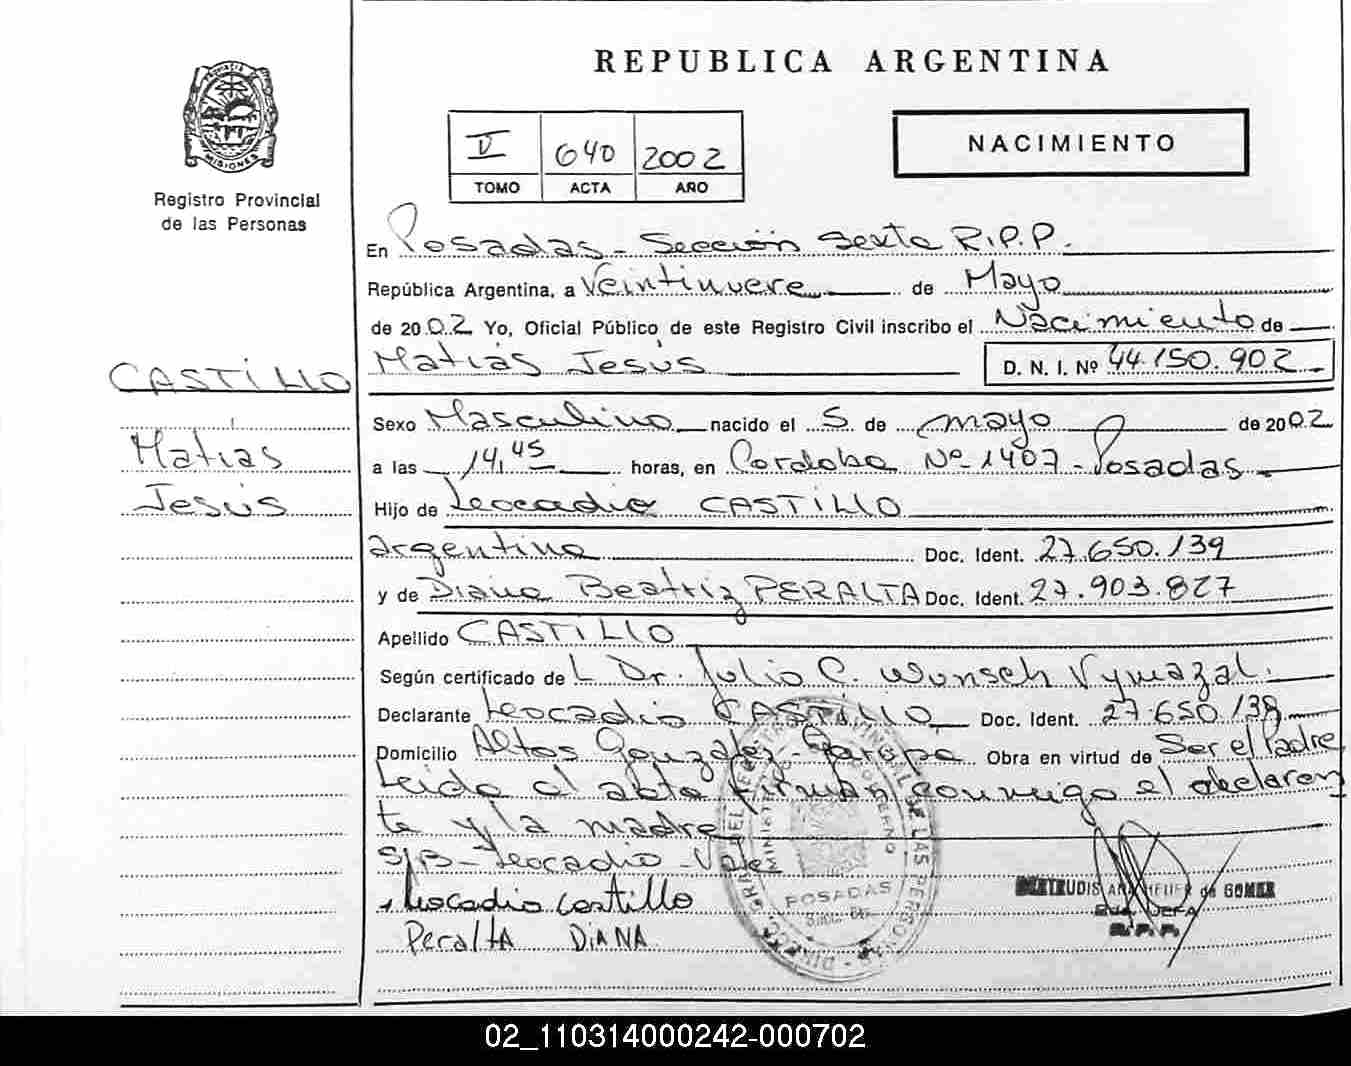 REPUBLICA ARGENTINA
PROVINCIA
MISIONES
Registro Provincial
de las Personas
V 640 2002
TOMO ACTA AÑO
NACIMIENTO
En Posadas - Sección Sexta R.P.P.
República Argentina, a Veintinueve de Mayo
de 2002 Yo, Oficial Público de este Registro Civil inscribo el Nacimiento de
Matías Jesús D. N. I. Nº 44.150.902
CASTILLO
Matías
Jesús
Sexo Masculino nacido el 5 de mayo de 2002
a las 14,45 horas, en Cordoba Nº 1407 - Posadas
Hijo de Leocadio CASTILLO
argentino Doc. Ident. 27.650.139
y de Diana Beatriz PERALTA Doc. Ident. 27.903.827
Apellido CASTILLO
Según certificado de L Dr. Julio C. Wunsch Vymazal.
Declarante Leocadio CASTILLO Doc. Ident. 27.650.139
Domicilio Altos Gonzalez - Garupá Obra en virtud de Ser el Padre
Leida el acta firman conmigo el declaran
te y la madre
S/B - Leocadio - Vale
Leocadio Castillo
Peralta DiANA
POSADAS
de GOMEZ
R.P.P.
02_110314000242-000702